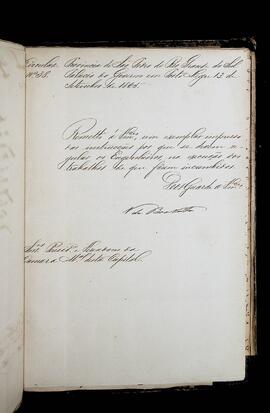 Circular Provincia de São Pedro do Rio Grande do Sul
Nº 38. Palacio do Governo em Porto Alegre 13 de
Setembro de 1865.
Remetto a Vmces um exemplar impresso
das instrucções por que se devem re-
gular os Engenheiros, na execução dos
trabalhos de que forem incumbidos.
Deos Guarde a Vmces
Snrs Presid.e e Vereadores da
Camara M.al desta Capital.